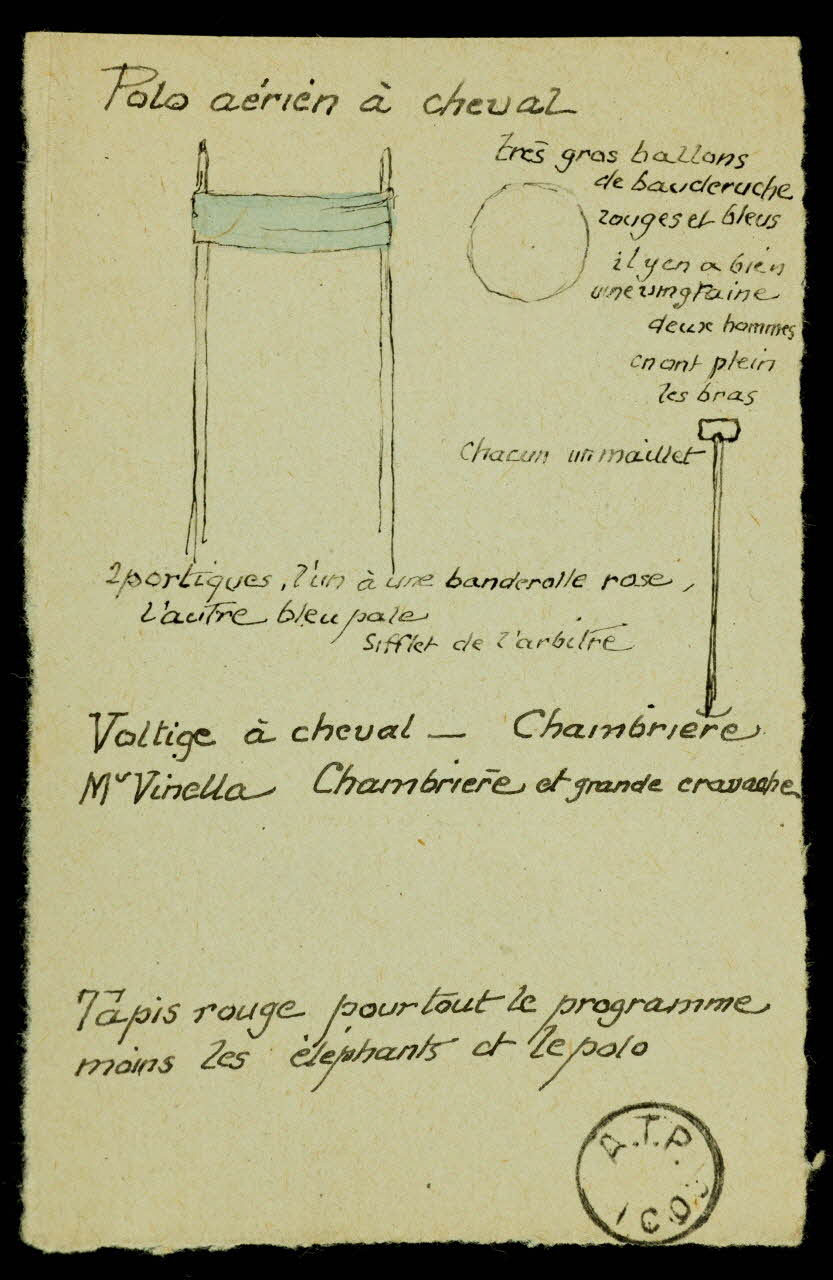 Polo aérien à cheval
très gros ballons
de bauderuche
rouges et bleus
il y en a bien
une vingtaine
deux hommes
en ont plein
les bras
Chacun un maillet
2 portiques, l'un à une banderolle rose,
l'autre bleu pale
Sifflet de l'arbitre
Voltige à cheval — Chambrière
Mr Vinella Chambrière et grande cravache
Tapis rouge pour tout le programme
moins les éléphants et le polo
A.T.P.